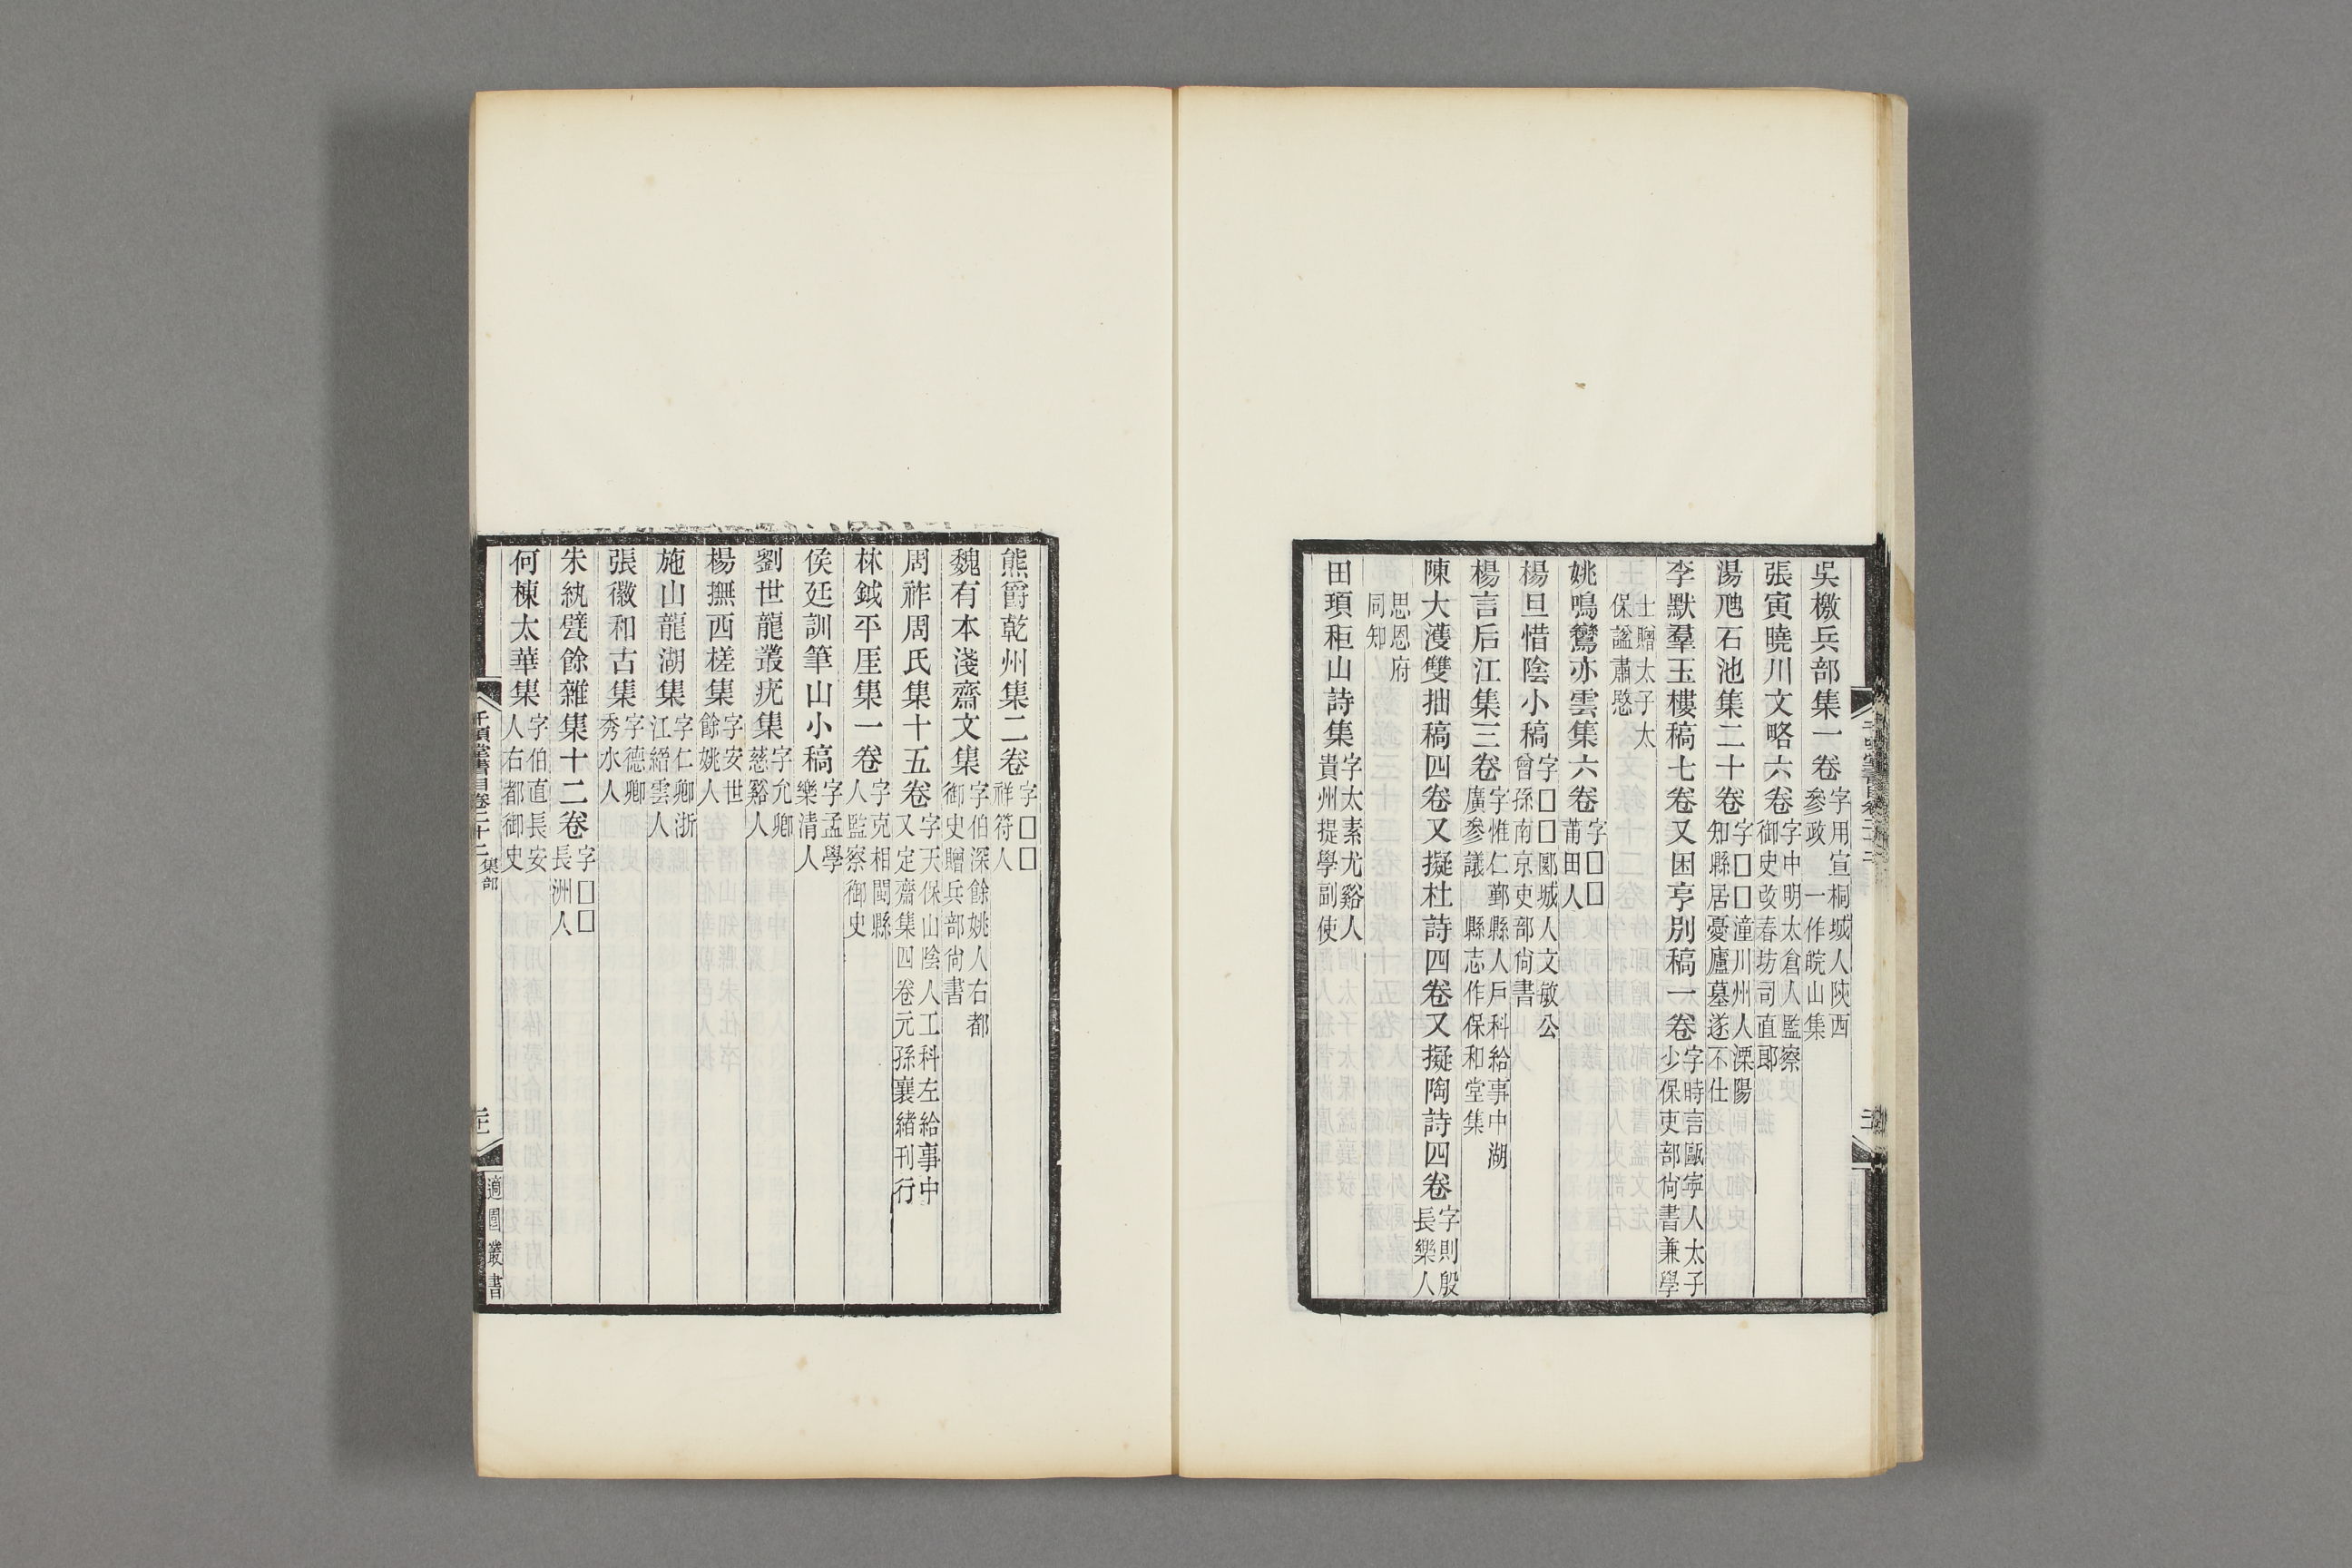 吳檄兵部集一卷字用宣桐城人陝西參政 一作皖山集
張寅曉川文略六卷字中明太倉人監察御史改春坊司直郎
湯虺石池集二十卷字□□潼川州人溧陽知縣居憂廬墓遂不仕
李默羣玉樓稿七卷又困亨別稿一卷字時言甌寜人太子少保吏部尙書兼學
士贈太子太保諡肅愍
姚鳴鸞亦雲集六卷字□□莆田人
楊旦惜陰小稿字□□郾城人文敏公曾孫南京吏部尙書
楊言后江集三卷字惟仁鄞縣人戶科給事中湖廣參議 縣志作保和堂集
陳大濩雙拙稿四卷又擬杜詩四卷又擬陶詩四卷字則殷長樂人
思恩府同知
田頊秬山詩集字太素尤谿人貴州提學副使
熊爵乾州集二卷字□□祥符人
魏有本淺齋文集字伯深餘姚人右都御史贈兵部尙書
周祚周氏集十五卷字天保山陰人工科左給事中又定齋集四卷元孫襄緒刊行
林鉞平厓集一卷字克相閩縣人監察御史
侯廷訓筆山小稿字孟學樂清人
劉世龍叢疣集字允卿慈谿人
楊撫西槎集字安世餘姚人
施山龍湖集字仁卿浙江縉雲人
張徽和古集字德卿秀水人
朱紈甓餘雜集十二卷字□□長洲人
何棟太華集字伯直長安人右都御史
千頃堂書目卷二十二 集部
適園叢書